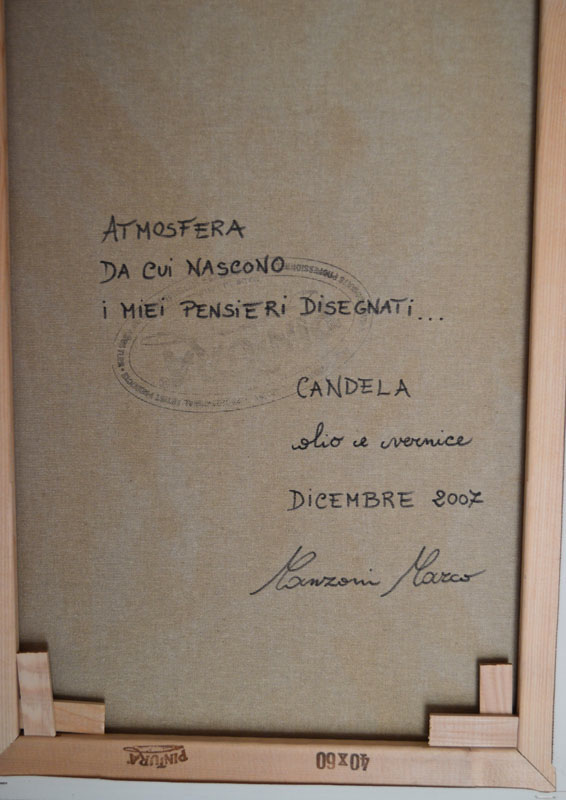 ATMOSFERA
DA CUI NASCONO
i MIEI PENSIERI DISEGNATI...
CANDELA
olio e vernice
DICEMBRE 2007
Manzoni Marco
PINTURA
40x60